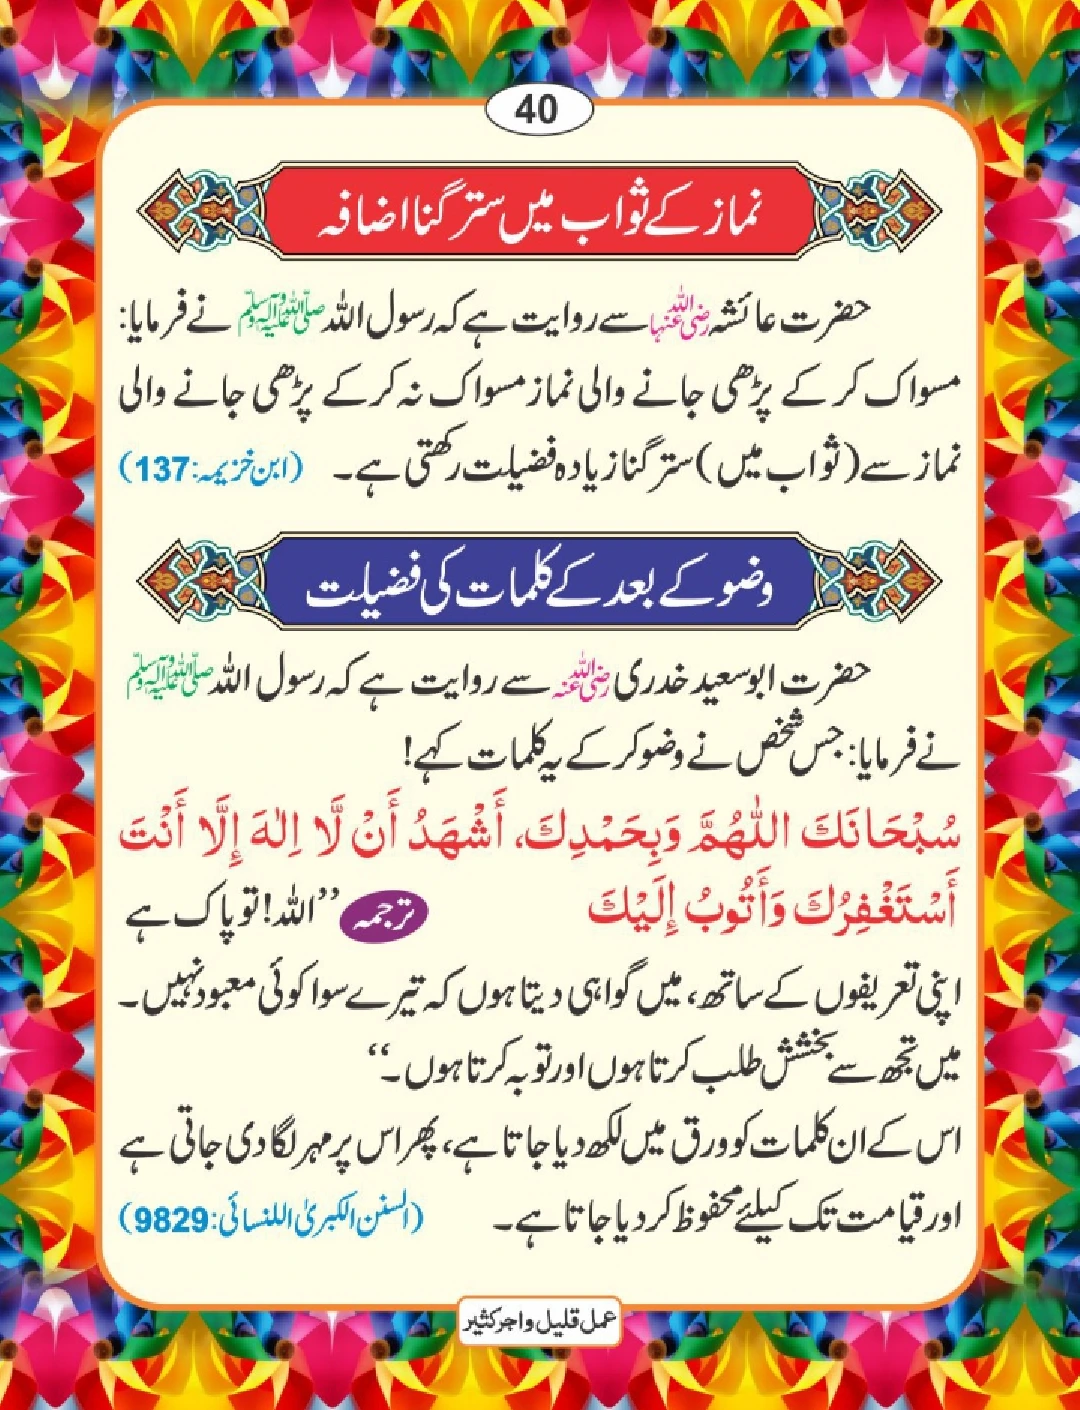 40
نماز کے ثواب میں ستر گنا اضافہ
حضرت عائشہ رضی اللہ عنہا سے روایت ہے کہ رسول اللہ صلی اللہ علیہ وآلہ وسلم نے فرمایا:
مسواک کر کے پڑھی جانے والی نماز مسواک نہ کر کے پڑھی جانے والی
نماز سے (ثواب میں) ستر گنا زیادہ فضیلت رکھتی ہے۔ (ابن خزیمہ: 137)
وضو کے بعد کے کلمات کی فضیلت
حضرت ابوسعید خدری رضی اللہ عنہ سے روایت ہے کہ رسول اللہ صلی اللہ علیہ وآلہ وسلم
نے فرمایا: جس شخص نے وضو کر کے یہ کلمات کہے!
سُبْحَانَكَ اللّٰهُمَّ وَبِحَمْدِكَ، أَشْهَدُ أَنْ لَّا اِلٰهَ إِلَّا أَنْتَ
أَسْتَغْفِرُكَ وَأَتُوبُ إِلَيْكَ ترجمہ ”اللہ! تو پاک ہے
اپنی تعریفوں کے ساتھ، میں گواہی دیتا ہوں کہ تیرے سوا کوئی معبود نہیں۔
میں تجھ سے بخشش طلب کرتا ہوں اور توبہ کرتا ہوں۔“
اس کے ان کلمات کو ورق میں لکھ دیا جاتا ہے، پھر اس پر مہر لگا دی جاتی ہے
اور قیامت تک کیلئے محفوظ کر دیا جاتا ہے۔ (السنن الکبریٰ اللنسائی: 9829)
عمل قلیل و اجر کثیر